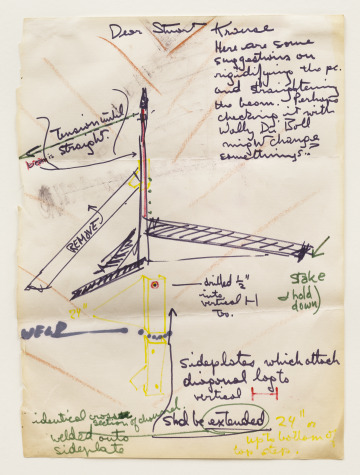 Dear Stuart Krause
Here are some
suggestions on
rigidifying the pc.
and straightening
the beam. Perhaps
checking it with
Wally Di. Boll
might change
somethings.
Tension until
straight.
REMOVE
24"
WELD
drilled ½"
into
vertical H
too.
stake
(hold
down)
sideplates which attach
diagonal log to
vertical
identical cross
section of channel
welded onto
sideplate
Shd be extended 24" or
up to bottom of
top step.